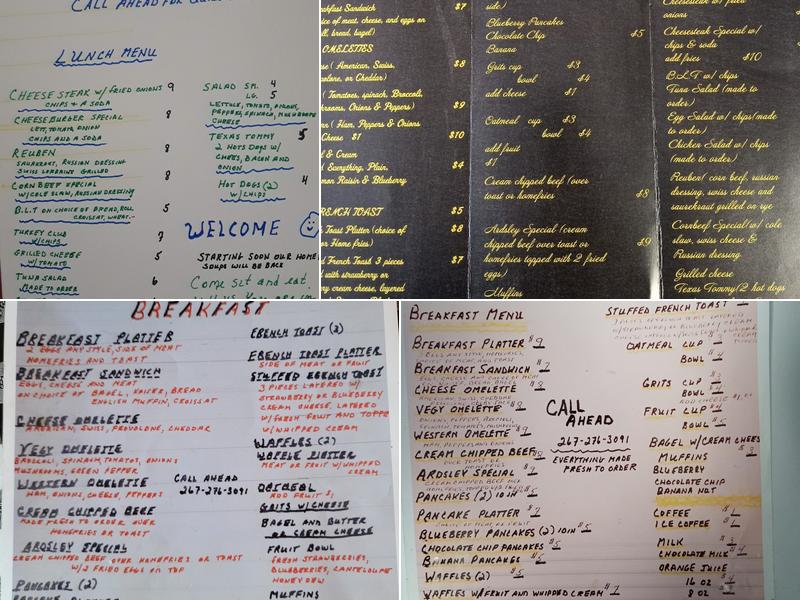 CALL AHEAD FOR
LUNCH MENU
CHEESE STEAK W/ FRIED ONIONS 9
CHIPS & A SODA
CHEESEBURGER SPECIAL 8
LETT, TOMATO ONION
CHIPS AND A SODA
REUBEN 8
SAUERKRAUT, RUSSIAN DRESSING
SWISS GRILLED
CORN BEEF SPECIAL 8
W/ COLE SLAW, RUSSIAN DRESSING
B.L.T ON CHOICE OF BREAD, ROLL 5
CROISSAT, WHEAT,
TURKEY CLUB 7
W/ CHIPS
GRILLED CHEESE 5
W/ TOMATO
TUNA SALAD 6
MADE TO ORDER
SALAD SM. 4
LG. 5
LETTUCE, TOMATO, ONIONS,
PEPPERS, SPINACH, MUSHROOMS
CHEESE
TEXAS TOMMY 5
2 HOT DOGS W/
CHEES, BACON AND
ONION
HOT DOGS (2) 4
W/ CHIPS
WELCOME
STARTING SOON OUR HOME
SOUPS WILL BE BACK
Come sit and eat.
akfast Sandwich $7
ice of meat, cheese, and eggs on
ll, bread, bagel)
OMELETTES
se ( American, Swiss, $8
volone, or Cheddar)
( Tomatoes, spinach, Broccoli,
shrooms, Onions & Peppers) $9
n ( Ham, Peppers & Onions
Cheese $1 $10
l & Cream
( Everything, Plain, $4
mon Raisin & Blueberry
RENCH TOAST $5
Toast Platter (choice of $8
us Home fries)
d French Toast 3 pieces $7
with strawberry or
ry cream cheese, layered
side.)
Blueberry Pancakes
Chocolate Chip $5
Banana
Grits cup $3
bowl $4
add cheese $1
Oatmeal cup $3
bowl $4
add fruit
$1
Cream chipped beef (over
toast or homefries $8
Ardsley Special (cream
chipped beef over toast or $9
homefries topped with 2 fried
eggs)
Muffins
Cheesesteak w/ fried
onions
Cheesesteak Special w/
chips & soda
add fries $10
B.L.T w/ chips
Tuna Salad (made to
order)
Egg Salad w/ chips(made
to order)
Chicken Salad w/ chips
(made to order)
Reuben( corn beef, russian
dressing, swiss cheese and
sauerkraut grilled on rye
Cornbeef Special(w/ cole
slaw, swiss cheese &
Russian dressing
Grilled cheese
Texas Tommy(2 hot dogs
BREAKFAST
BREAKFAST PLATTER
2 EGGS ANY STYLE, SIDE OF MEAT
HOMEFRIES AND TOAST
BREAKFAST SANDWICH
EGGS, CHEESE AND MEAT
ON CHOICE OF BAGEL, KAISER, BREAD
ENGLISH MUFFIN, CROISSAT
CHEESE OMELETTE
AMERICAN, SWISS, PROVALONE, CHEDDAR
VEGY OMELETTE
BROCCOLI, SPINACH, TOMATOS, ONIONS
MUSHROOMS, GREEN PEPPER
WESTERN OMELETTE
HAM, ONIONS, CHEESE, PEPPERS
CREAM CHIPPED BEEF
MADE FRESH TO ORDER OVER
HOMEFRIES OR TOAST
ARDSLEY SPECIAL
CREAM CHIPPED BEEF OVER HOMEFRIES OR TOAST
W/ 2 FRIED EGGS ON TOP
PANCAKES (2)
CALL AHEAD
267-276-3091
FRENCH TOAST (2)
FRENCH TOAST PLATTER
SIDE OF MEAT OR FRUIT
STUFFED FRENCH TOAST
3 PIECES LAYERED W/
STRAWBERRY OR BLUEBERRY
CREAM CHEESE, LAYERED
W/ FRESH FRUIT AND TOPPE
W/ WHIPPED CREAM
WAFFLES (2)
WAFFLE PLATTER
MEAT OR FRUIT W/ WHIPPED
CREAM
OATMEAL
ADD FRUIT
GRITS W/ CHEESE
BAGEL AND BUTTER
OR CREAM CHEESE
FRUIT BOWL
FRESH STRAWBERRIES,
BLUEBERRIES, CANTELOUPE
HONEY DEW
MUFFINS
BREAKFAST MENU
BREAKFAST PLATTER $9
BREAKFAST SANDWICH $7
CHEESE OMELETTE $8
VEGY OMELETTE $9
WESTERN OMELETTE $9
CREAM CHIPPED BEEF $8
ARDSLEY SPECIAL $9
PANCAKES (2) 10 IN $5
PANCAKE PLATTER $7
BLUEBERRY PANCAKES (2) 10IN $5
CHOCOLATE CHIP PANCAKES $5
BANANA PANCAKES $5
WAFFLES (2) $5
WAFFLES W/ FRUIT AND WHIPPED CREAM $7
CALL
AHEAD
267-276-3091
EVERYTHING MADE
FRESH TO ORDER
STUFFED FRENCH TOAST
OATMEAL CUP
BOWL $4
GRITS CUP $3
BOWL $4
FRUIT CUP $4
BOWL $5
BAGEL W/ CREAM CHEESE
$3
MUFFINS
BLUEBERRY
CHOCOLATE CHIP
BANANA NUT
COFFEE $1
ICE COFFEE
MILK
CHOCOLATE MILK
ORANGE JUICE
16 OZ
8 OZ